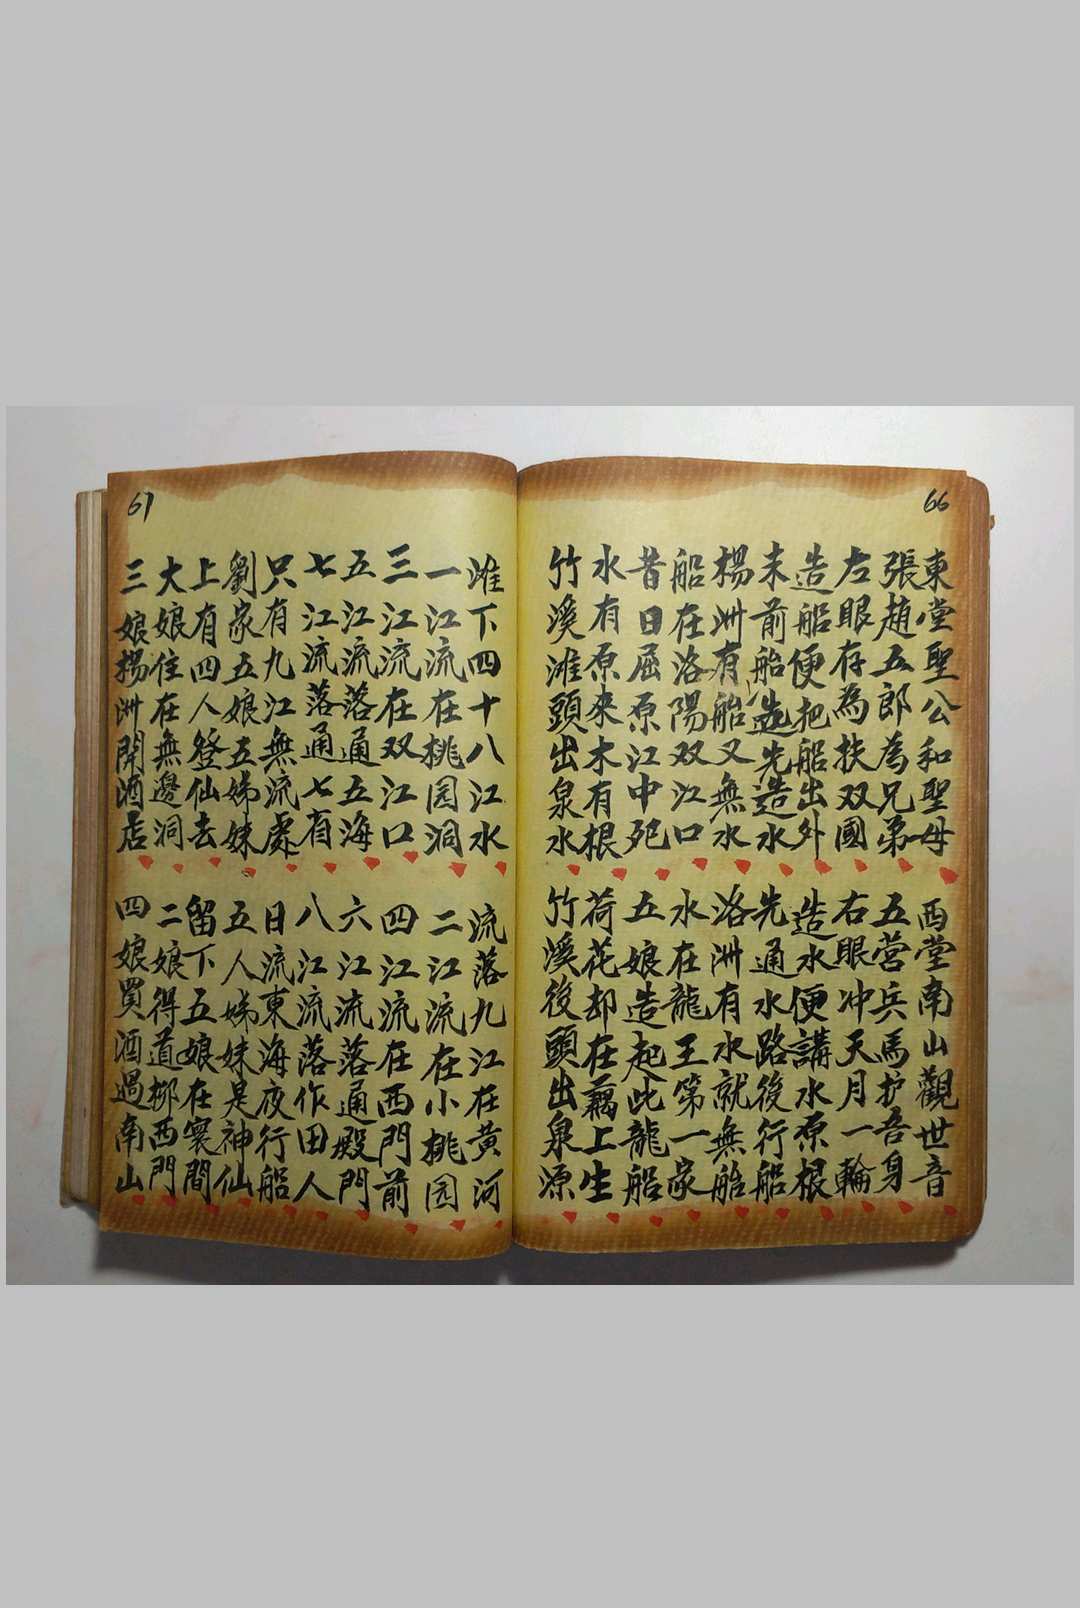 66
東堂聖公和聖母 西堂南山觀世音
張趙五郎為兄弟 五营兵馬护吾身
左眼存為扶双國 右眼冲天月一輪
造船便把船出外 造水便講水原根
未前船造先造水 先通水路後行船
楊洲有船又無水 洛洲有水就無船
船在洛陽双江口 水在龍王第一家
昔日屈原江中死 五娘造起此龍船
水有原來木有根 荷花却在藕上生
竹溪滩頭出泉水 竹溪後頭出泉源
67
滩下四十八江水 流落九江在黄河
一江流在桃园洞 二江流在小桃园
三江流在双江口 四江流在西門前
五江流落通五海 六江流落通殿門
七江流落通七省 八江流落作田人
只有九江無流處 日流東海夜行船
劉家五娘五姊妹 五人姊妹是神仙
上有四人登仙去 留下五娘在寰間
大娘住在無邊洞 二娘得道柳西門
三娘楊洲開酒店 四娘買酒過南山